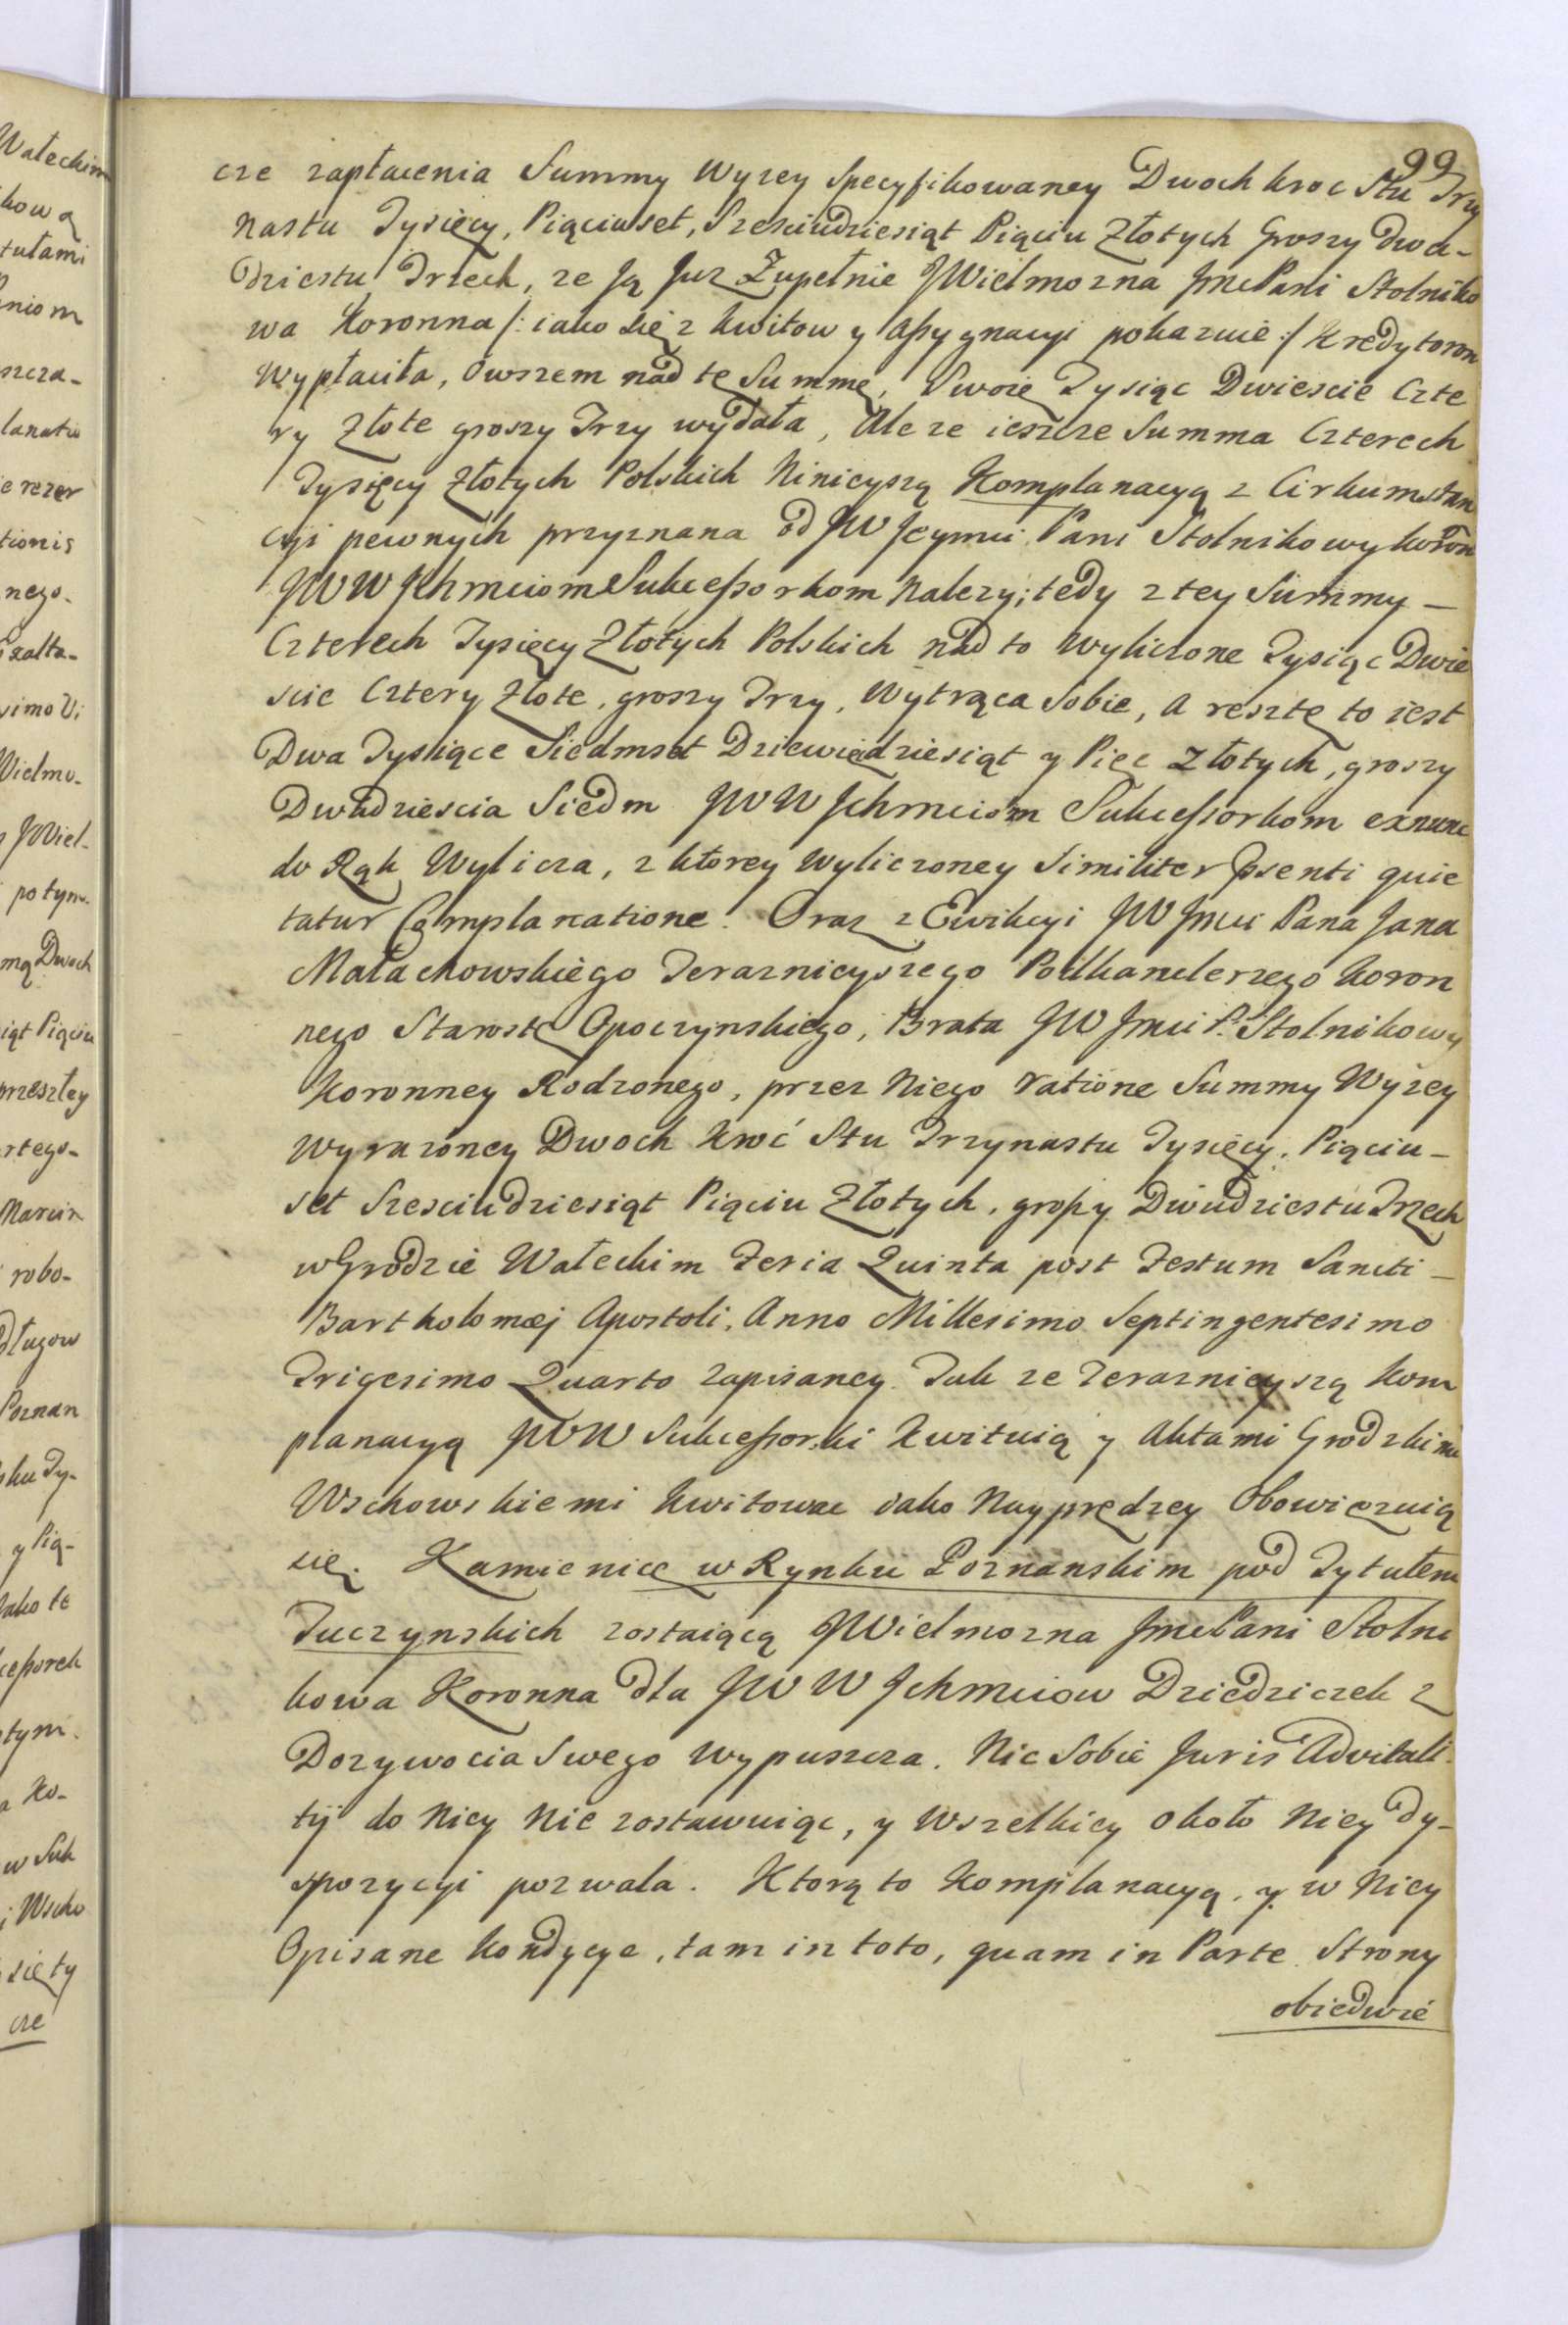 99
cze zapłacenia Summy Wyzey Specyfikowaney Dwoch kroc Stu Trzy
nastu Tysięcy, Piąciuset, Szesciudziesiąt Piąciu Złotych Groszy dwa-
dziestu Trzech, ze Ją Juz Zupełnie JWielmozna JmcPani Stolniko
wa Koronna /: iako się z kwitow y assygnacyi pokazuie :/ Kredytorom
Wypłaciła, Owszem nad tę Summę, Swoie Tysiąc Dwiescie Czte
ry Złote groszy Trzy wydała, Ale ze ieszcze Summa Czterech
Tysięcy Złotych Polskich Ninieyszą Komplanacyą z Cirkumstan
cyi pewnych przyznana od JW Jeymci Pani Stolnikowy koron
JWW Jchmciom Sukcessorkom Nalezy; tedy z tey Summy —
Czterech Tysięcy Złotych Polskich nad to Wyliczone Tysiąc Dwie
scie Cztery Złote, groszy Trzy, Wytrąca Sobie, A resztę to iest
Dwa Tysiące Siedmset Dziewiędziesiąt y Pięc Złotych, groszy
Dwadziescia Siedm JWW Jchmciom Sukcessorkom exnunc
do Rąk Wylicza, z ktorey Wyliczoney Similiter Psenti quie
tatur Complanatione. Oraz z Ewikcyi JW Jmci Pana Jana
Małachowskiego Teraznieyszego Podkanclerzego Koron
nego Starostę Opoczynskiego, Brata JW Jmci P. Stolnikowy
Koronney Rodzonego, przez Niego ratione Summy Wyzey
Wyrazoney Dwoch kroć Stu Trzynastu Tysięcy, Piąciu-
set Szesciudziesiąt Piąciu Złotych, grossy Dwudziestu Trzech
w Grodzie Wałeckim Feria Quinta post Festum Sancti —
Bartholomæj Apostoli, Anno Millesimo Septingentesimo
Trigesimo Quarto zapisaney. Tak ze Teraznieyszą Kom
planacyą JWW Sukcessorki Kwituią y Aktami Grodzkimi
Wschowskiemi Kwitowac iako Nayprędzey Obowięzuią
się. Kamienicę w Rynku Poznanskim pod Tytułem
Tuczynskich zostaiącą JWielmozna JmcPani Stolni
kowa Koronna dla JWW Jchmciow Dziedziczek z
Dozywocia Swego Wypuszcza. Nic Sobie Juris Advitali
tij do Niey Nie zostawuiąc, y Wszelkiey około Niey dy-
spozycyi pozwala. Ktorą to Komplanacyą, y w Niey
Opisane Kondycye, tam in toto, quam in Parte Strony
obiedwie